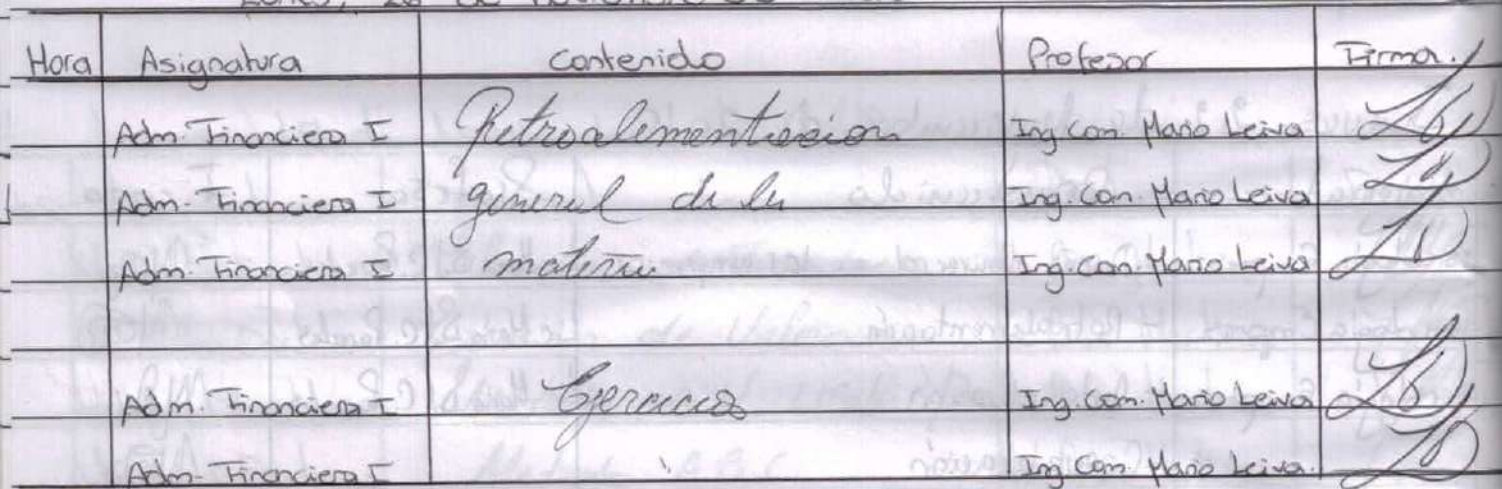 Hora Asignatura contenido Profesor Firma.
Adm. Financiera I Retroalimentación Ing. Com. Mario Leiva
Adm. Financiera I general de la Ing. Com. Mario Leiva
Adm. Financiera I materia Ing. Com. Mario Leiva
Adm. Financiera I Ejercicios Ing. Com. Mario Leiva
Adm. Financiera I Ing. Com. Mario Leiva.